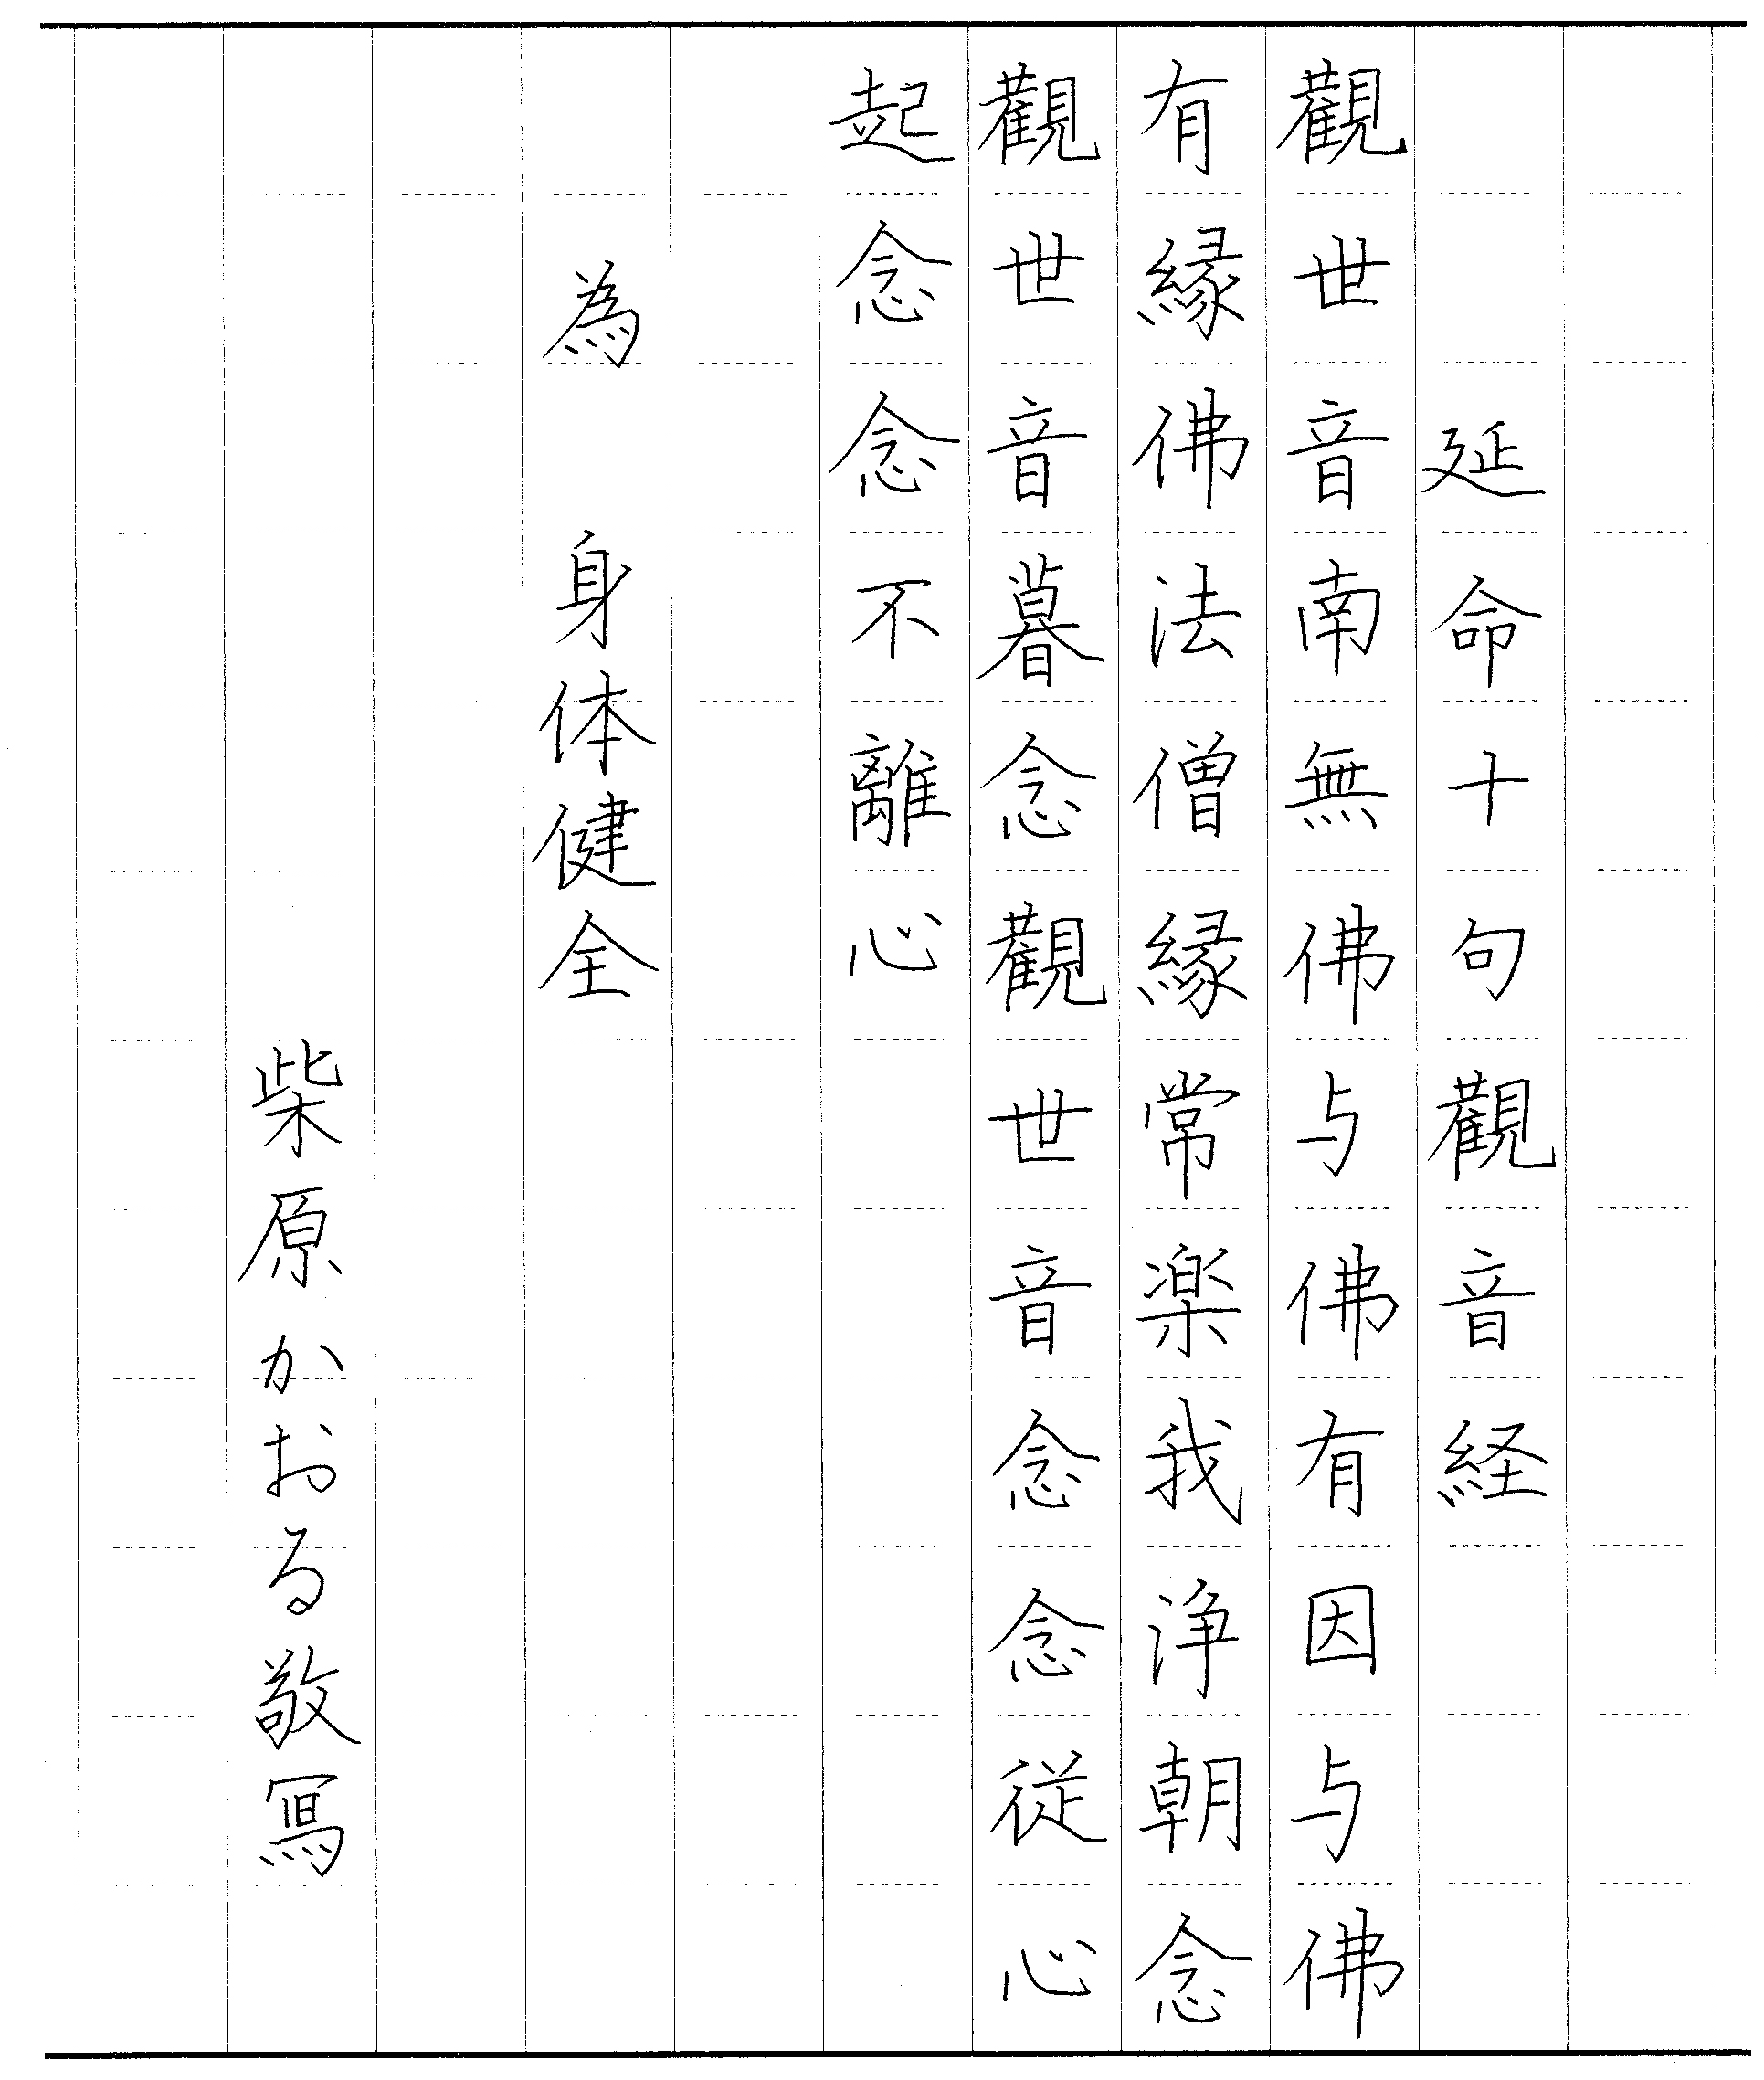 延命十句觀音経
觀世音南無佛与佛有因与佛
有縁佛法僧縁常楽我浄朝念
觀世音暮念觀世音念念従心
起念念不離心
為 身体健全
柴原かおる敬冩